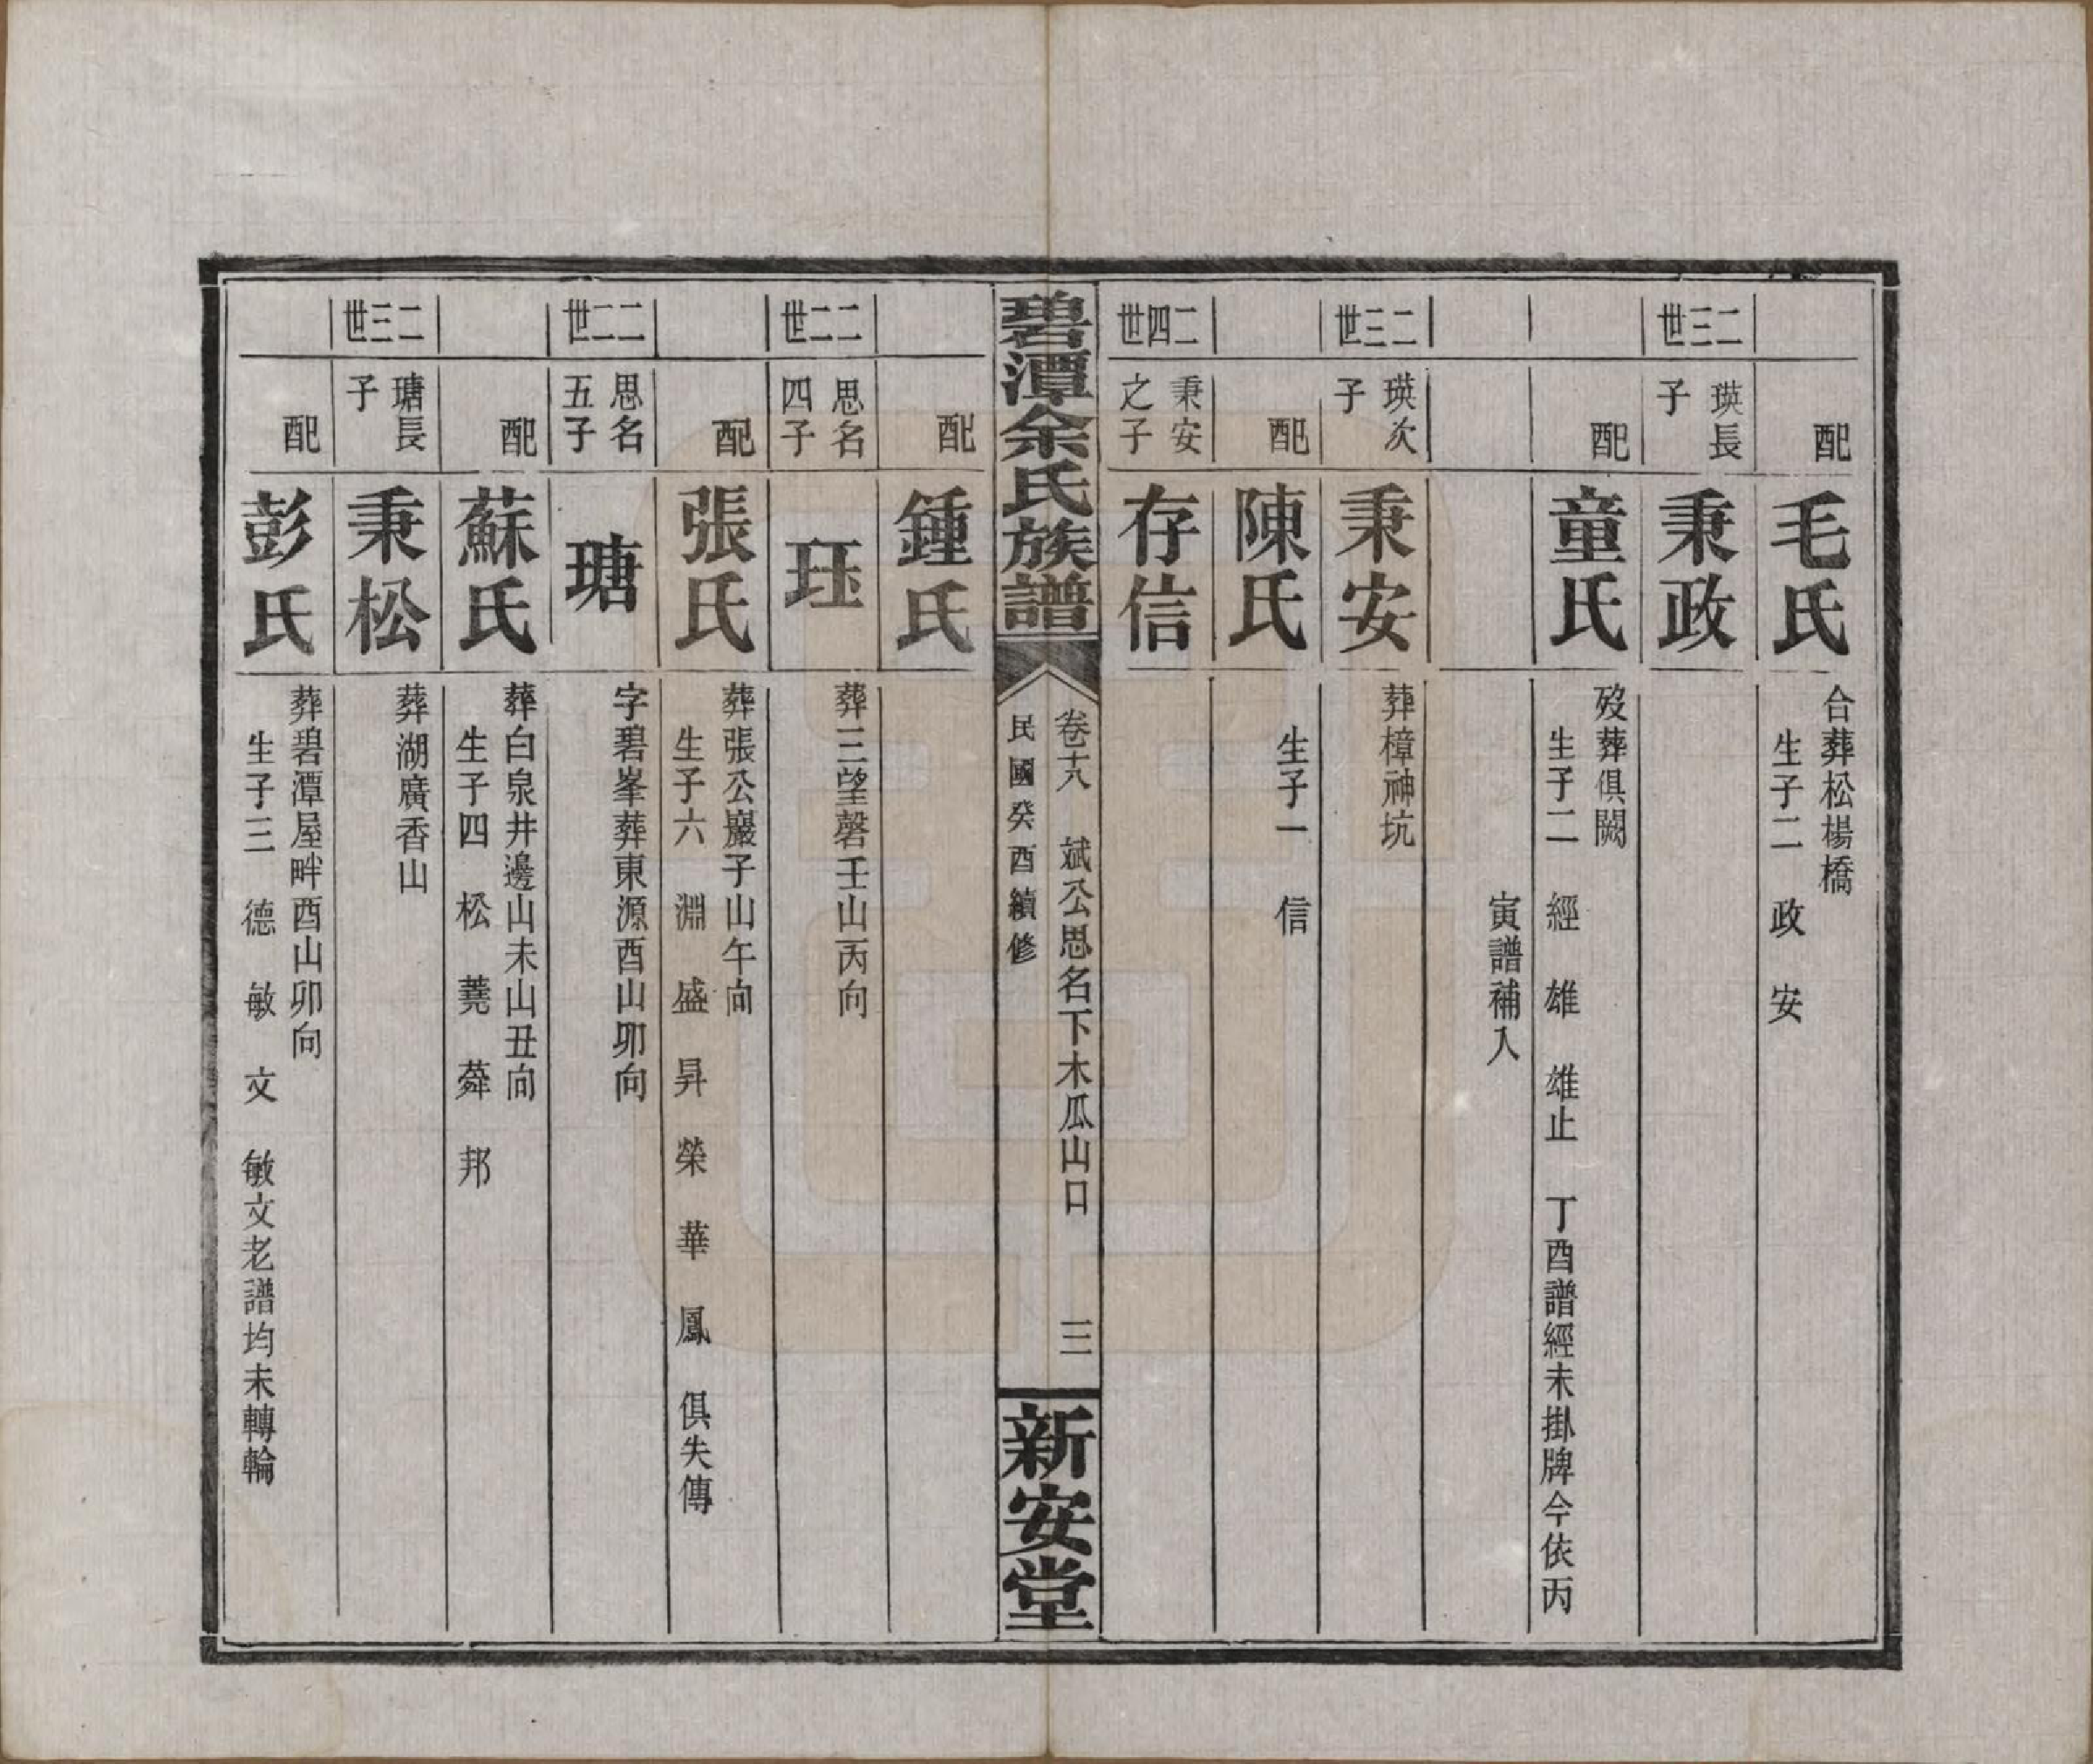 配
毛氏
合葬松楊橋
生子二　政　安
二三世
瑛長
子
秉政
配
童氏
歿葬俱闕
生子二　經　雄　雄止　丁酉譜經未掛牌今依丙
寅譜補入
二三世
瑛次
子
秉安
葬樟神坑
配
陳氏
生子一　信
二四世
秉安
之子
存信
碧潭余氏族譜
卷十八　斌公思名下木瓜山口　三
民國癸酉續修
新安堂
配
鍾氏
二二世
思名
四子
珏
葬三望磬壬山丙向
配
張氏
葬張公巖子山午向
生子六　淵　盛　昇　榮　華　鳳　俱失傳
二二世
思名
五子
瑭
字碧峯葬東源酉山卯向
配
蘇氏
葬白泉井邊山未山丑向
生子四　松　蕘　蕣　邦
二三世
瑭長
子
秉松
葬湖廣香山
配
彭氏
葬碧潭屋畔酉山卯向
生子三　德　敏　文　敏文老譜均未轉輪